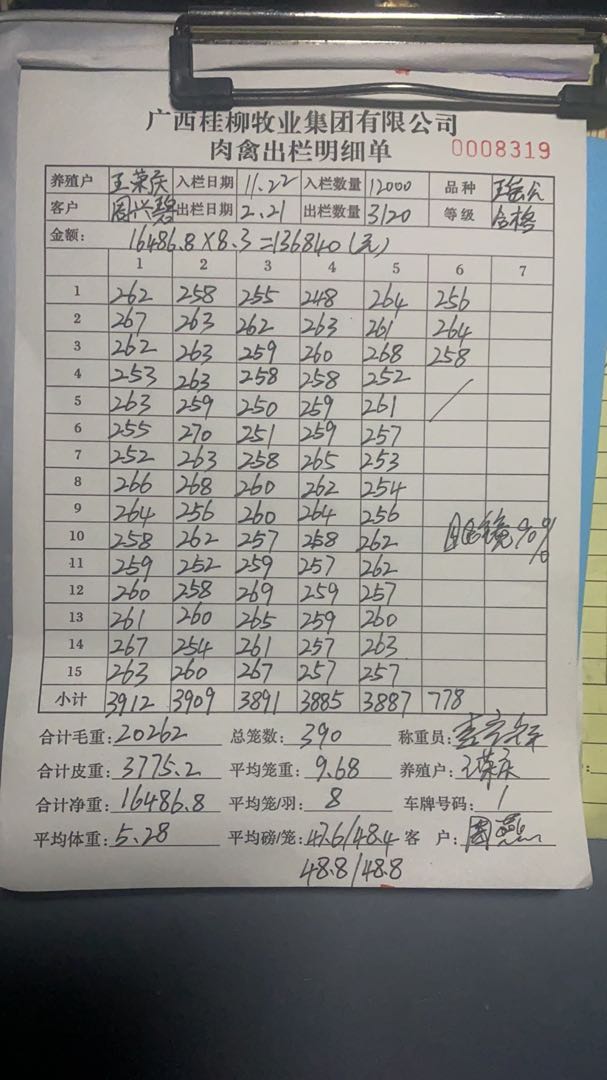 广西桂柳牧业集团有限公司
肉禽出栏明细单 0008319
养殖户 王荣庆 入栏日期 11.22 入栏数量 12000 品种
客户 周兴碧 出栏日期 2.21 出栏数量 3120 等级 合格
金额: 16486.8×8.3=136840(元)
1 2 3 4 5 6 7
1 262 258 255 248 264 256
2 267 263 262 263 261 264
3 262 263 259 260 268 258
4 253 263 258 258 252
5 263 259 250 259 261
6 255 270 251 259 257
7 252 263 258 265 253
8 266 268 260 262 254
9 264 256 260 264 256
10 258 262 257 258 262 90%
11 259 252 259 257 262
12 260 258 269 259 257
13 261 260 265 259 260
14 267 254 261 257 263
15 263 260 267 257 257
小计 3912 3909 3891 3885 3887 778
合计毛重: 20262 总笼数: 390 称重员:
合计皮重: 3775.2 平均笼重: 9.68 养殖户: 王荣庆
合计净重: 16486.8 平均笼/羽: 8 车牌号码: 1
平均体重: 5.28 平均磅/笼: 47.6/48.4 客 户:
48.8/48.8